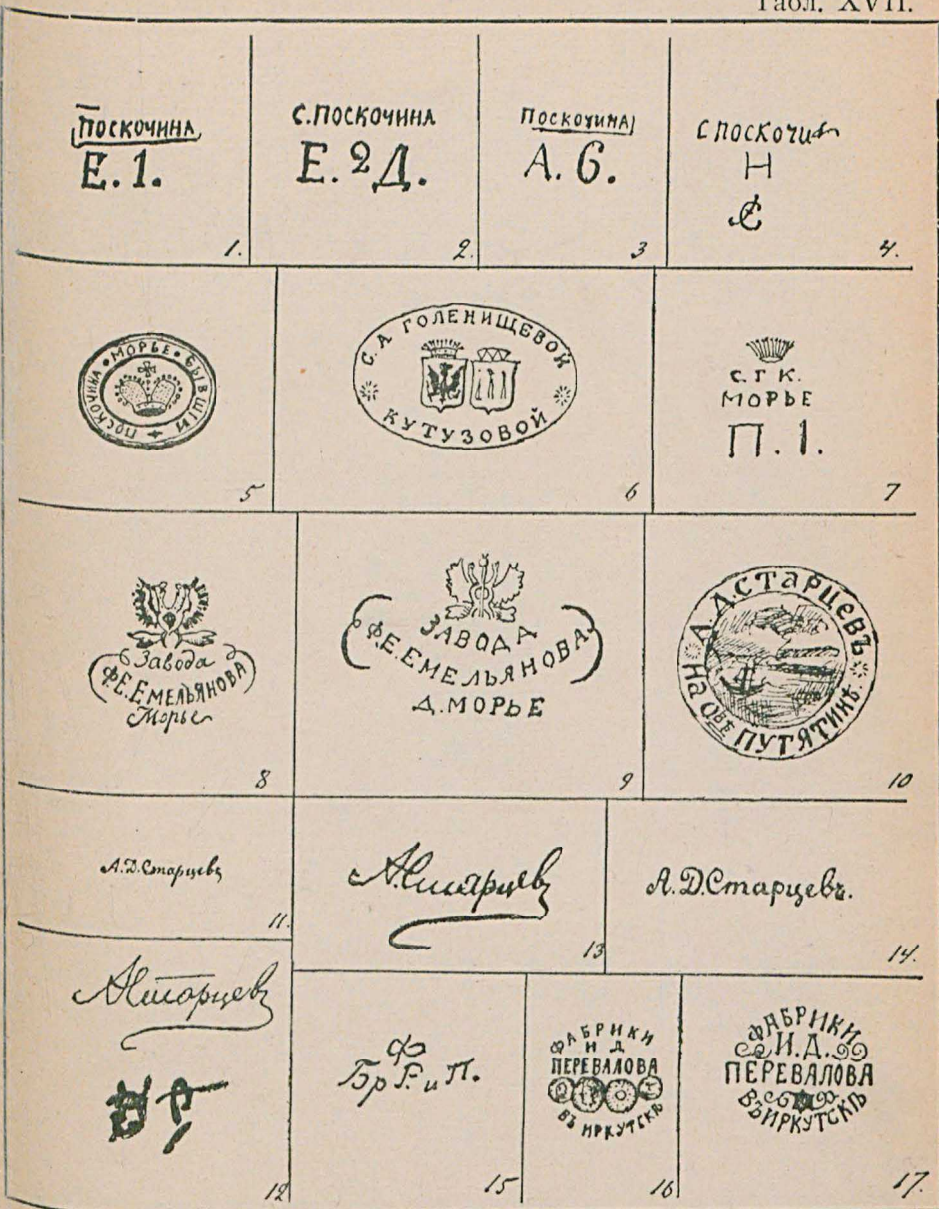 Табл. XVII.
ПОСКОЧИНА
Е. 1.
1.
С. ПОСКОЧИНА
Е. 2 Д.
2.
ПОСКОЧИНА
А. 6.
3
С ПОСКОЧИН
Н
С
4.
ПОСКОЧИНА • МОРЬЕ • БЫВШІМ
5
С. А ГОЛЕНИЩЕВОЙ
КУТУЗОВОЙ
6
С. Г К.
МОРЬЕ
П. 1.
7
Завода
Ф. Е. ЕМЕЛЬЯНОВА
Морье
8
ЗАВОДА
Ф. Е. ЕМЕЛЬЯНОВА
Д. МОРЬЕ
9
А. Д. СТАРЦЕВЪ
На Овѣ ПУТЯТИНѢ.
10
А. Д. Старцевъ
11.
АСтарцевъ
13
А. Д. Старцевъ.
14.
АСтарцевъ
12
Ф
Бр Г. и П.
15
ФАБРИКИ
И Д
ПЕРЕВАЛОВА
ВЪ ИРКУТСКѢ
16
ФАБРИКИ
И. Д.
ПЕРЕВАЛОВА
ВЪ ИРКУТСКѢ
17.